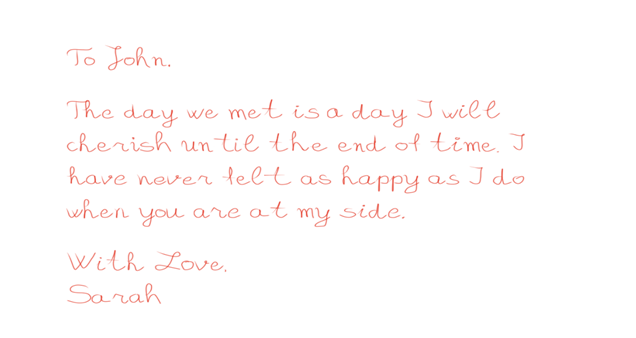 To John.
The day we met is a day I will
cherish until the end of time. I
have never felt as happy as I do
when you are at my side.
With Love.
Sarah